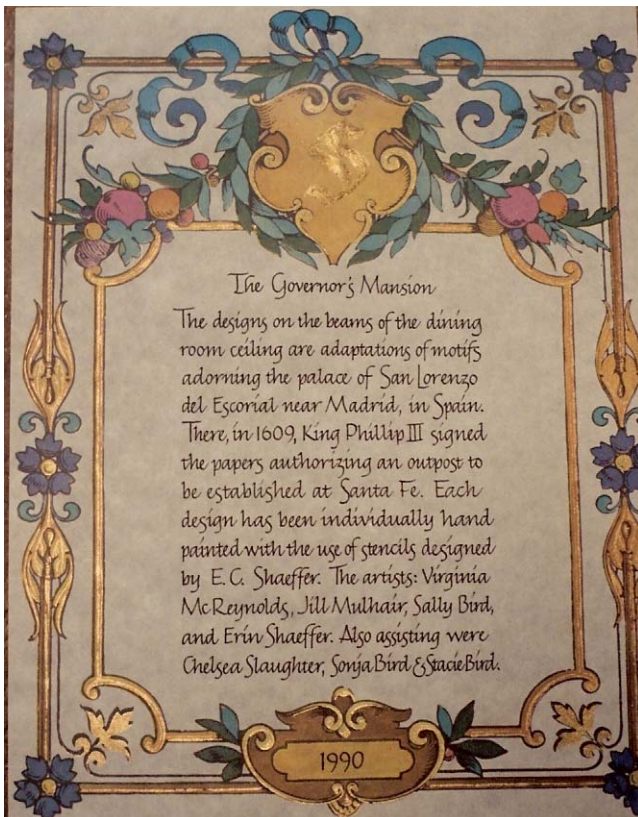 The Governor's Mansion
The designs on the beams of the dining
room ceiling are adaptations of motifs
adorning the palace of San Lorenzo
del Escorial near Madrid, in Spain.
There, in 1609, King Phillip III signed
the papers authorizing an outpost to
be established at Santa Fe. Each
design has been individually hand
painted with the use of stencils designed
by E.C. Shaeffer. The artists: Virginia
McReynolds, Jill Mulhair, Sally Bird,
and Erin Shaeffer. Also assisting were
Chelsea Slaughter, Sonja Bird & Stacie Bird.
1990